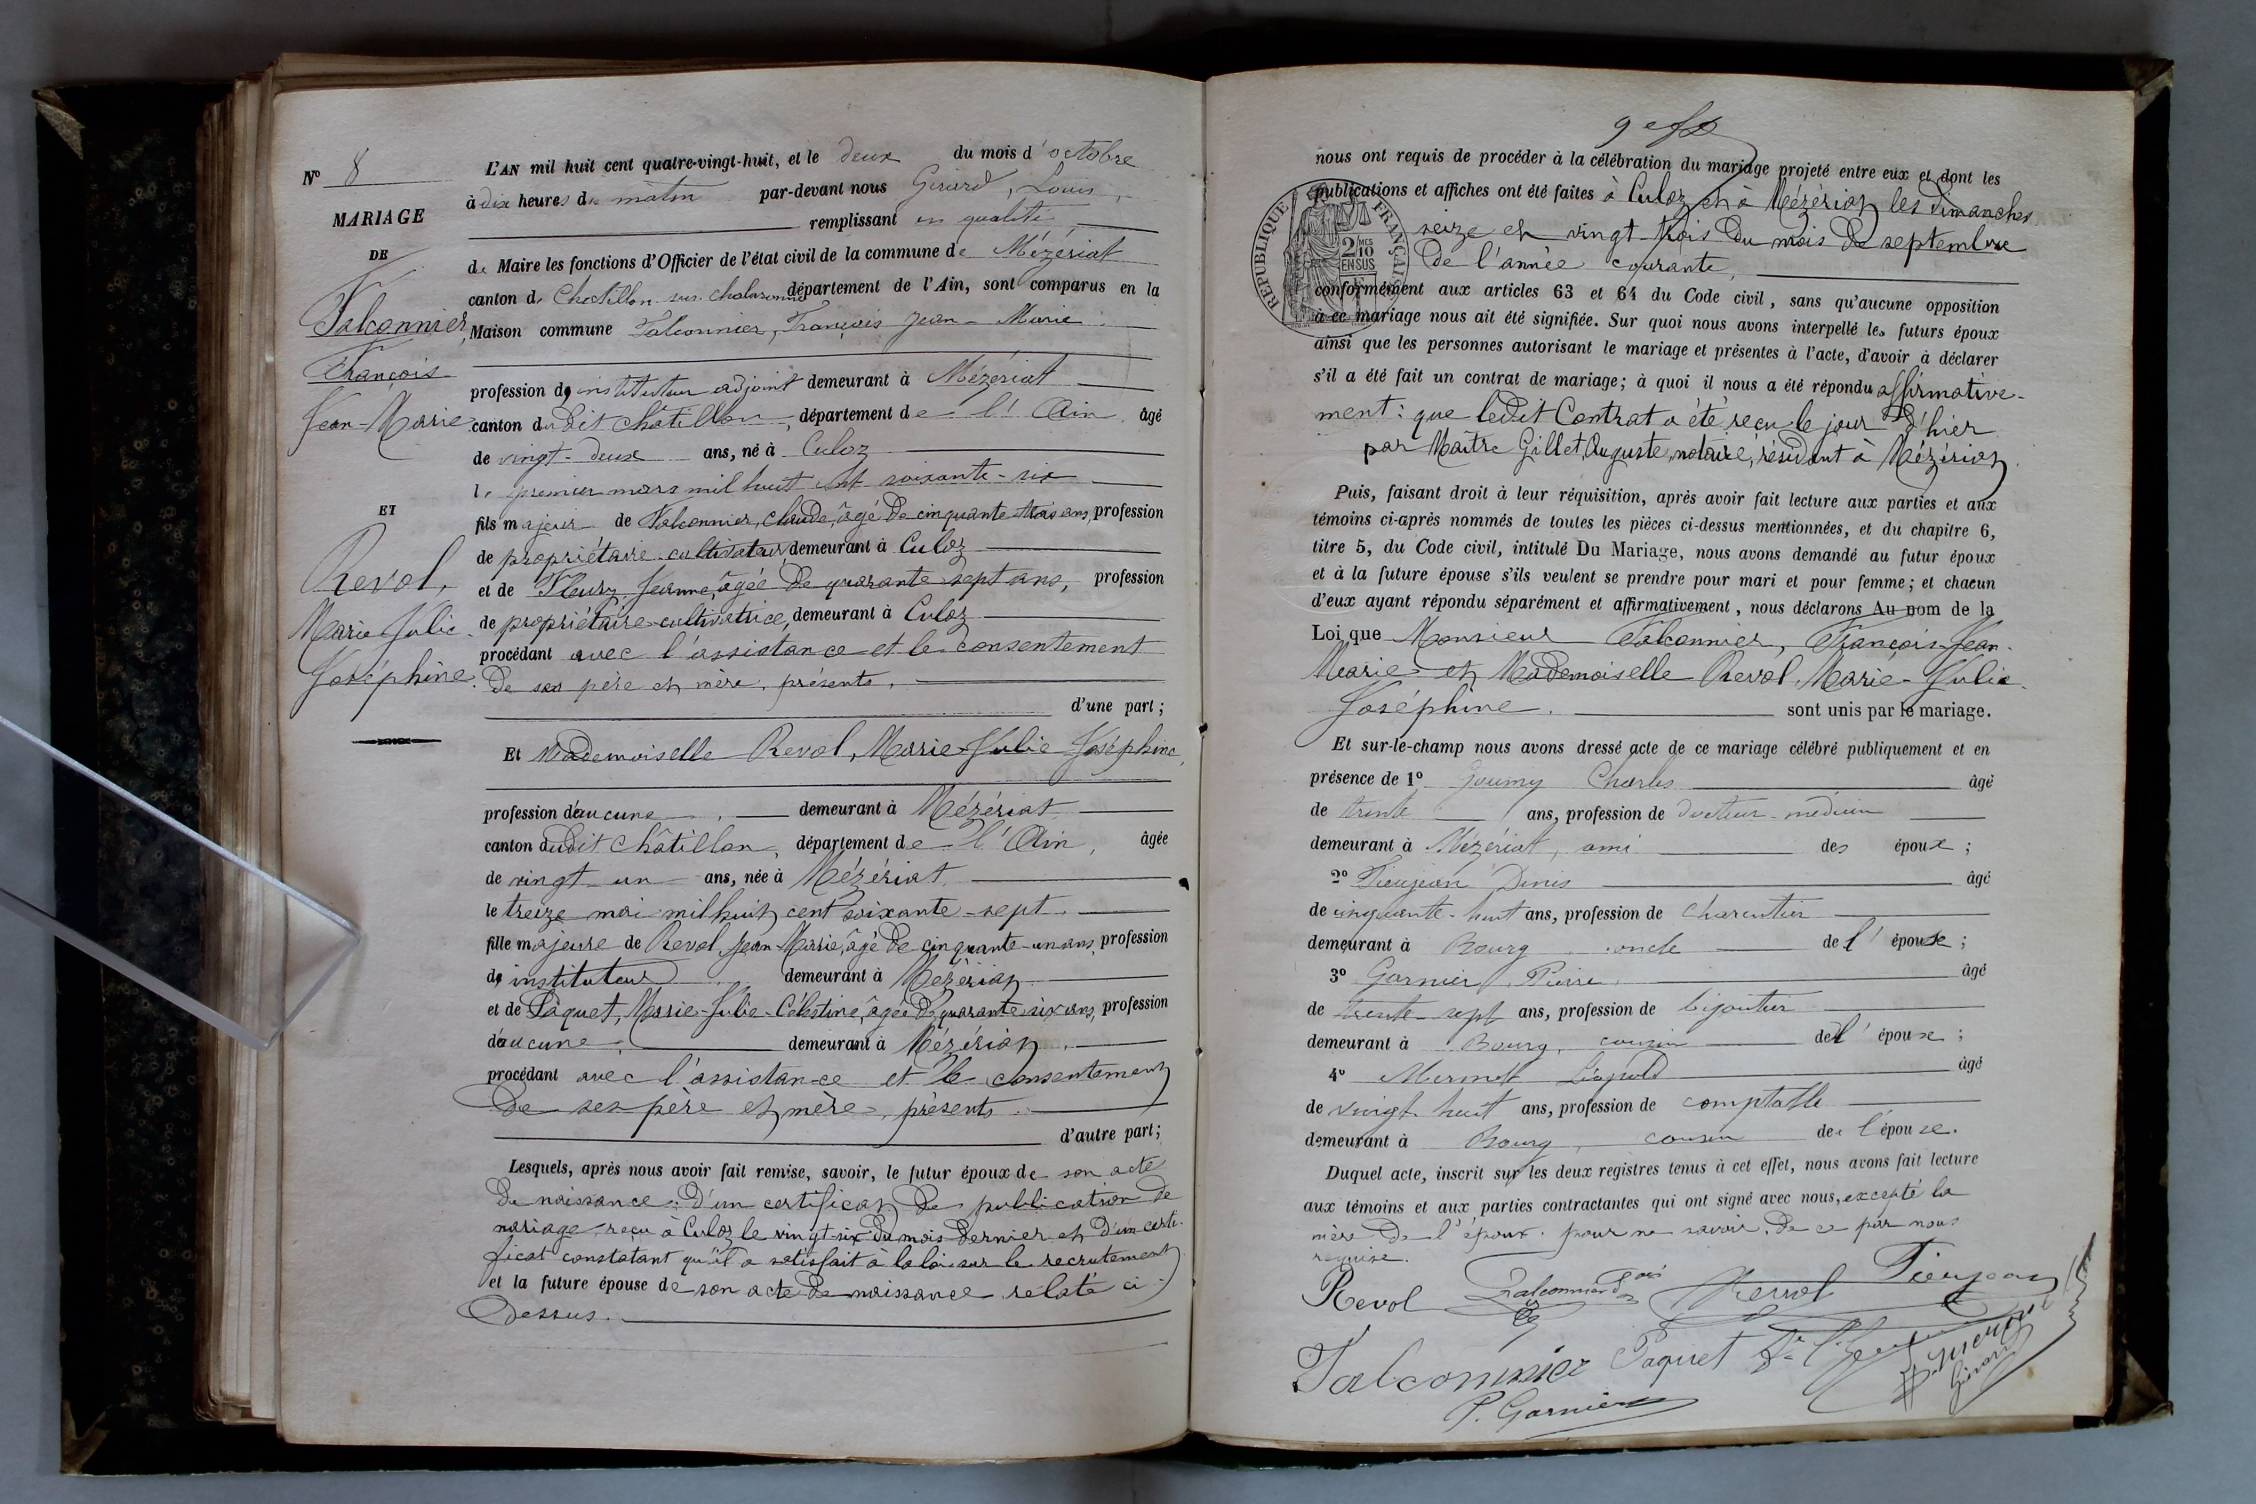 N° 8
MARIAGE
DE
Falconnier,
François
Jean-Marie
ET
Revol,
Marie-Julie
Joséphine.
L'AN mil huit cent quatre-vingt-huit, et le deux du mois d'octobre
à dix heures du matin par-devant nous Girard, Louis,
remplissant en qualité
de Maire les fonctions d'Officier de l'état civil de la commune de Mézériat
canton de Chatillon-sur-Chalaronne département de l'Ain, sont comparus en la
Maison commune Falconnier, François Jean-Marie
profession d'instituteur adjoint demeurant à Mézériat
canton dudit Châtillon, département de l'Ain âgé
de vingt-deux ans, né à Culoz
le premier mars mil huit cent soixante-six
fils majeur de Falconnier, Claude, âgé de cinquante trois ans, profession
de propriétaire-cultivateur, demeurant à Culoz
et de Fleury Jeanne, âgée de quarante-sept ans, profession
de propriétaire-cultivatrice, demeurant à Culoz
procédant avec l'assistance et le consentement
de ses père et mère, présents,
d'une part;
Et Mademoiselle Revol, Marie-Julie Joséphine,
profession d'aucune, demeurant à Mézériat
canton dudit Châtillon, département de l'Ain, âgée
de vingt-un ans, née à Mézériat
le treize mai mil huit cent soixante-sept
fille majeure de Revol, Jean-Marie, âgé de cinquante-un ans, profession
d'instituteur, demeurant à Mézériat
et de Paquet, Marie-Julie-Célestine, âgée de quarante six ans, profession
d'aucune, demeurant à Mézériat
procédant avec l'assistance et le consentement
de ses père et mère, présents.
d'autre part;
Lesquels, après nous avoir fait remise, savoir, le futur époux de son acte
de naissance; d'un certificat de publication de
mariage reçu à Culoz le vingt-six du mois dernier et d'un certi-
ficat constatant qu'il a satisfait à la loi sur le recrutement
et la future épouse de son acte de naissance relaté ci-
dessus.
nous ont requis de procéder à la célébration du mariage projeté entre eux et dont les
publications et affiches ont été faites à Culoz et à Mézériat les dimanches
seize et vingt-trois du mois de septembre
de l'année courante,
RÉPUBLIQUE FRANÇAISE
2 MES
10
EN SUS
conformément aux articles 63 et 64 du Code civil, sans qu'aucune opposition
à ce mariage nous ait été signifiée. Sur quoi nous avons interpellé les futurs époux
ainsi que les personnes autorisant le mariage et présentes à l'acte, d'avoir à déclarer
s'il a été fait un contrat de mariage; à quoi il nous a été répondu affirmative-
ment: que ledit Contrat a été reçu le jour d'hier
par Maître Gillet, Auguste, notaire, résidant à Mézériat.
Puis, faisant droit à leur réquisition, après avoir fait lecture aux parties et aux
témoins ci-après nommés de toutes les pièces ci-dessus mentionnées, et du chapitre 6,
titre 5, du Code civil, intitulé Du Mariage, nous avons demandé au futur époux
et à la future épouse s'ils veulent se prendre pour mari et pour femme; et chacun
d'eux ayant répondu séparément et affirmativement, nous déclarons Au nom de la
Loi que Monsieur Falconnier, François-Jean-
Marie et Mademoiselle Revol, Marie-Julie
Joséphine. sont unis par le mariage.
Et sur-le-champ nous avons dressé acte de ce mariage célébré publiquement et en
présence de 1° Goumy Charles âgé
de trente ans, profession de docteur-médecin
demeurant à Mézériat, ami des époux;
2° Tieujean Denis âgé
de cinquante-huit ans, profession de charcutier
demeurant à Bourg, oncle de l'épouse;
3° Garnier, Pierre, âgé
de trente-sept ans, profession de bijoutier
demeurant à Bourg, cousin de l'épouse;
4° Mermet Léopold âgé
de vingt-huit ans, profession de comptable
demeurant à Bourg, cousin de l'épouse.
Duquel acte, inscrit sur les deux registres tenus à cet effet, nous avons fait lecture
aux témoins et aux parties contractantes qui ont signé avec nous, excepté la
mère de l'époux pour ne savoir, de ce par nous
requise.
Revol Falconnier Revol Tieujean
Falconnier Paquet
P. Garnier Girard